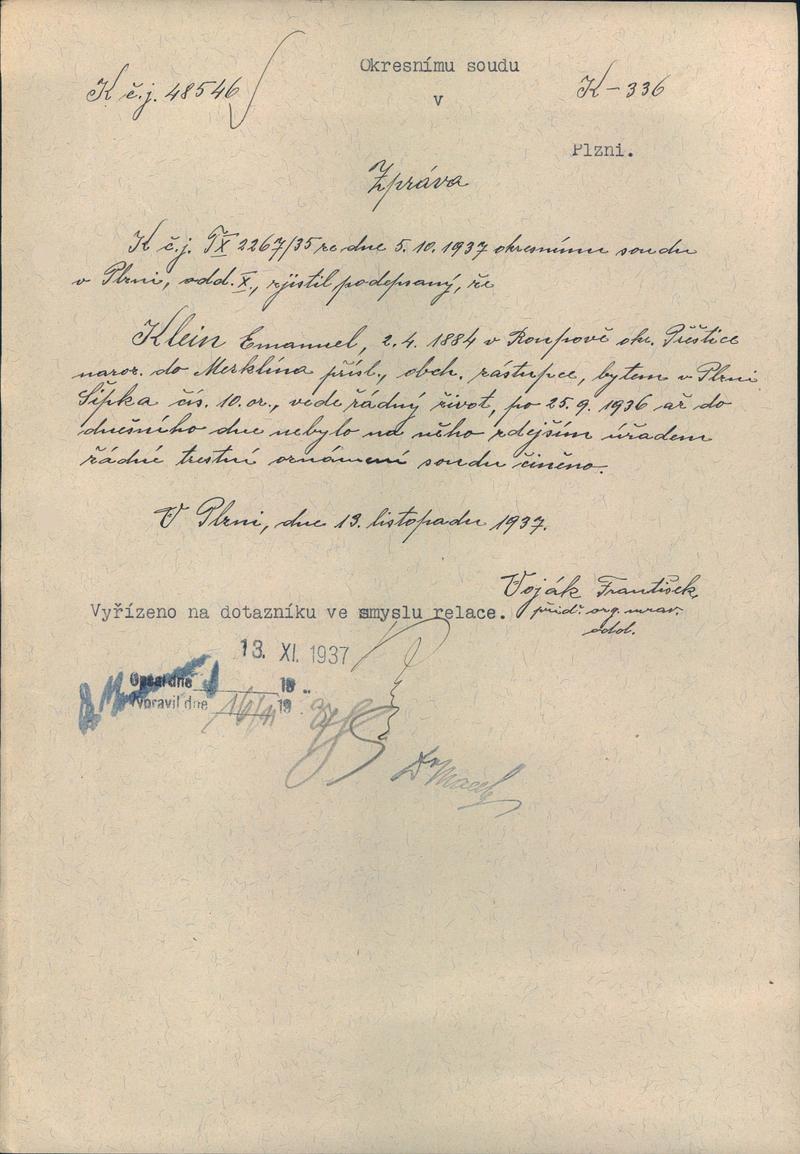 Okresnímu soudu
K č.j. 48546
v
K-336
Plzni.
Zpráva
K č.j. Tx 2267/35 ze dne 5.10.1937 okresnímu soudu
v Plzni, odd. X., zjistil podepsaný, že
Klein Emanuel, 2.4. 1884 v Roupově okr. Přeštice
naroz. do Merklína přísl., obch. zástupce, bytem v Plzni
Šípka čís. 10.or., vede řádný život, po 25.9.1936 až do
dnešního dne nebylo na něho zdejším úřadem
žádné trestní oznámení soudu činěno.
V Plzni, dne 13. listopadu 1937.
Voják František
přiděl. org. mrav.
odd.
Vyřízeno na dotazníku ve smyslu relace.
13. XI. 1937
Opsal dne 19
Vypravil dne 16/11 19 37
Dr Macek